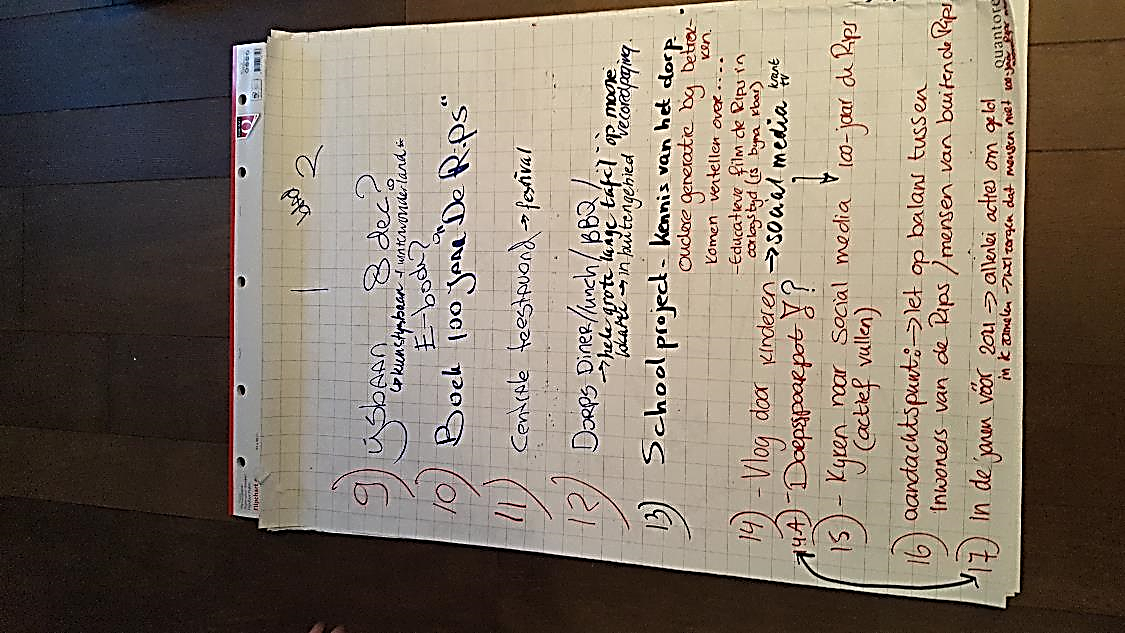 1 2
9) ijsbaan 8 dec?
↳ kunstijsbaan + winterwonderland
E-book?
10) Boek "100 jaar De Rips"
11) Centrale feestavond → festival
12) Dorps Diner/lunch/BBQ/
→ hele grote lange tafel op mooie
lokatie → in buitengebied recordpoging.
13) School project - kennis van het dorp.
oudere generatie bij betrek-
ken.
komen vertellen over....
- Educatieve film de Rips in
oorlogstijd (is bijna klaar)
14) - Vlog door kinderen → social media krant tv
14A) - Dorpsspaarpot ?
15) - Kijken naar Social media 100-jaar de Rips
(actief vullen)
16) aandachtspunt: → let op balans tussen
inwoners van de Rips / mensen van buiten de Rips
17) In de jaren vóór 2021 → allerlei acties om geld
in te zamelen → zorgen dat mensen met 100-jaar Rips
quantore
Flipchart